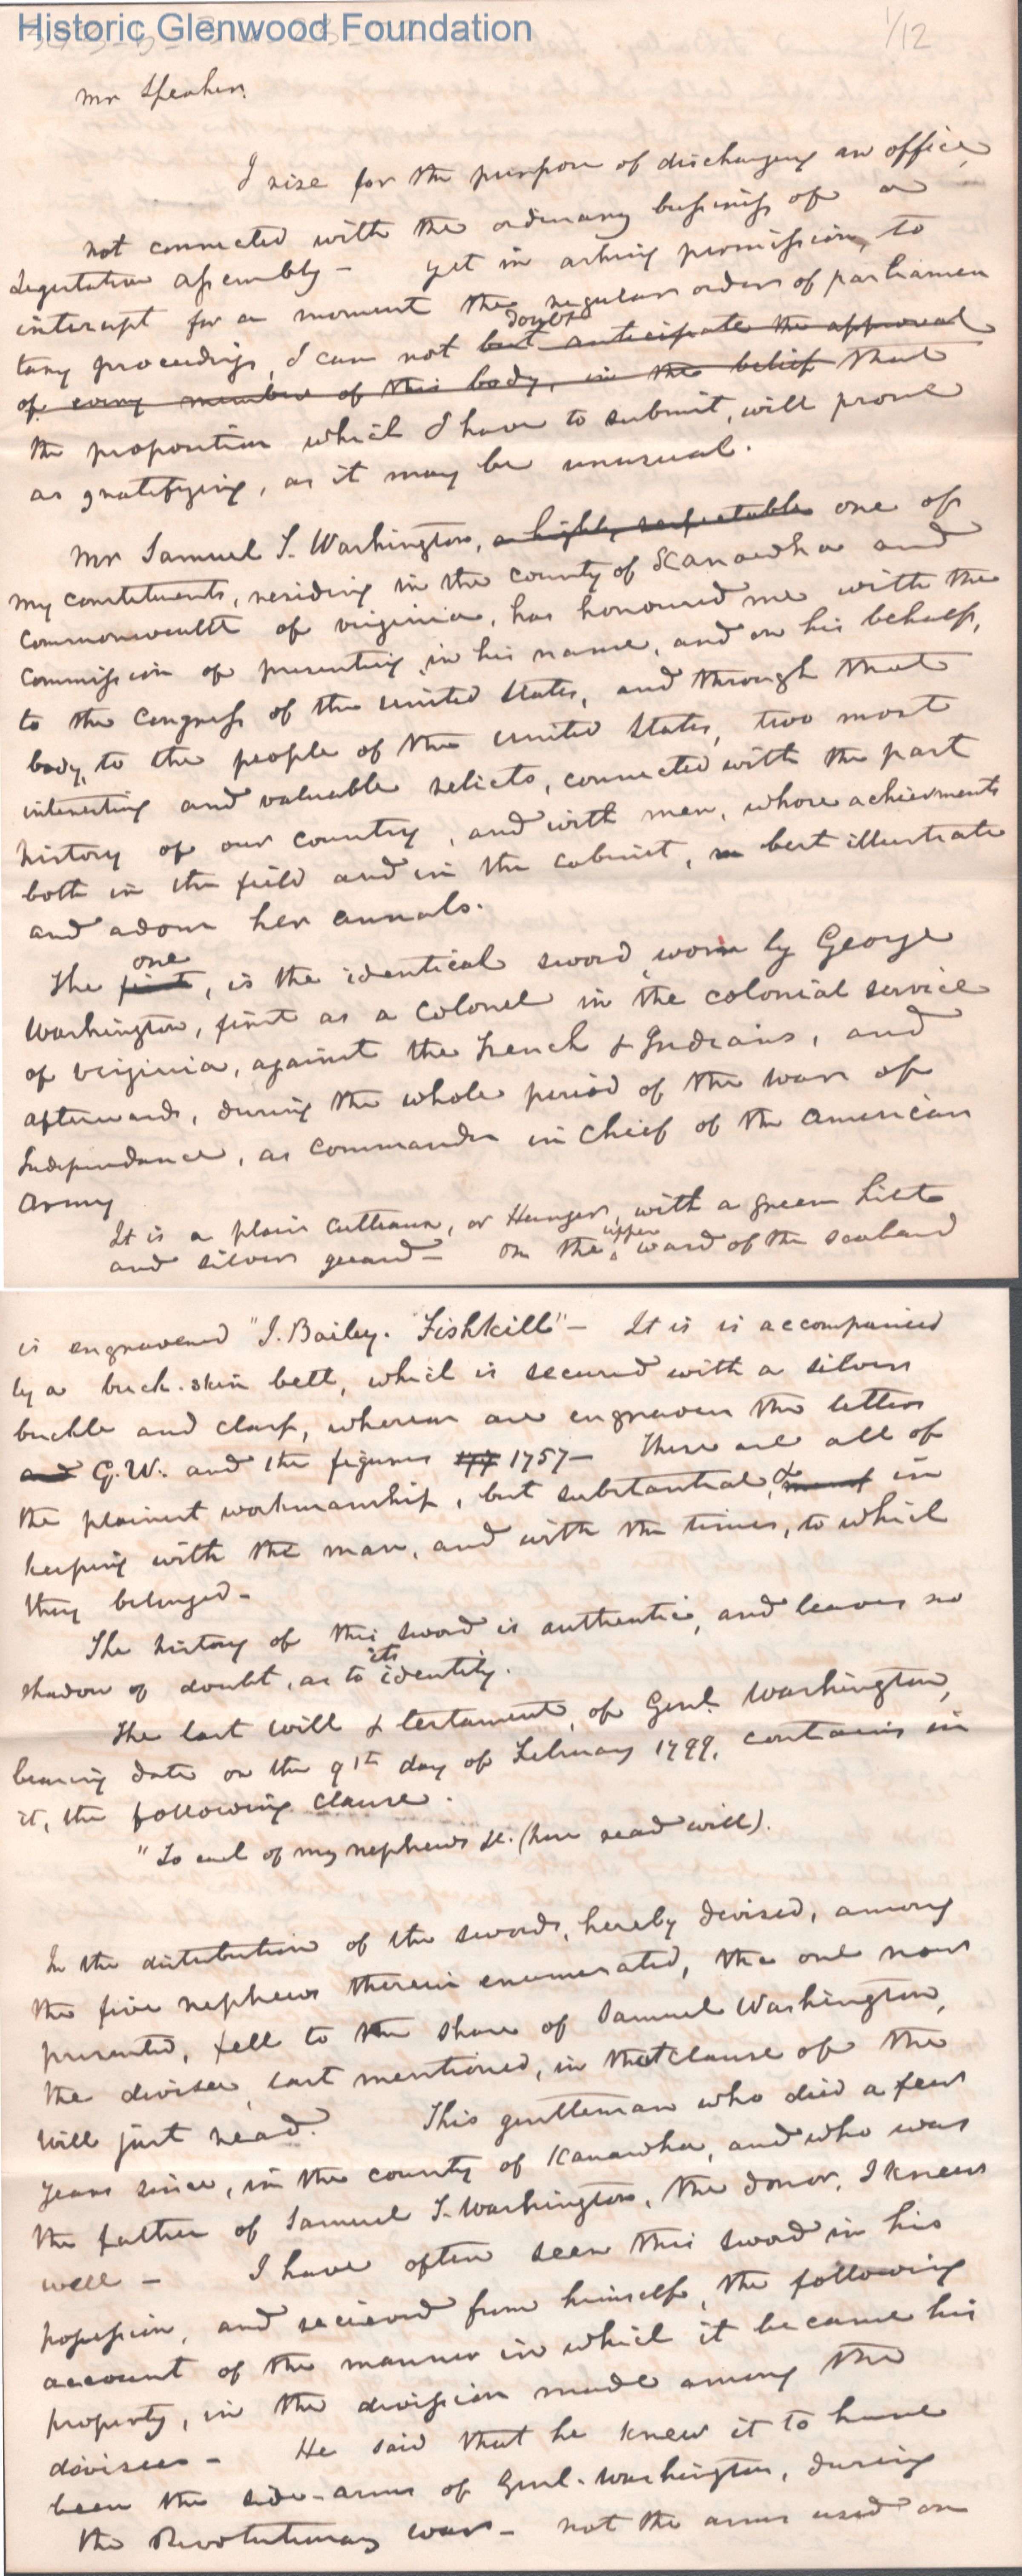 Historic Glenwood Foundation
1/12
Mr Speaker.
I rise for the purpose of discharging an office,
not connected with the ordinary business of a
Legistative assembly - yet in asking permission, to
interupt for a moment the regular orders of parliamen
doubt
tary proceedings, I can not but anticipate the approval
of every member of this body, in the belief that
the proposition which I have to submit, will prove
as gratifying, as it may be unusual.
Mr Samuel T. Washington, a highly respectable one of
my constituents, residing in the county of Kanawha and
Commonwealth of virginia, has honoured me with the
Commission of presenting, in his name, and on his behalf,
to the Congress of the United States, and through that
body, to the people of the United States, two most
interesting and valuable relicts, connected with the past
history of our country, and with men, whose achievments
both in the field and in the cabinet, best illustrate
and adorn her annals.
one
The first, is the identical sword, worn by George
Washington, first as a Colonel in the colonial service
of virginia, against the French & Indians, and
afterwards, during the whole period of the war of
Independance, as Commander in Chief of the American
Army
It is a plain Cutteaux, or Hanger, with a green hilt
upper
and silver guard - On the ward of the scabard
is engravened "J. Bailey. Fishkill" - It is is accompanied
by a buck-skin belt, which is secured with a silver
buckle and clasp, whereon are engraven the letters
and G.W. and the figures 177 1757 - These are all of
&
the plainest workmanship, but substantial, in
keeping with the man, and with the times, to which
they belonged -
The history of this sword is authentic, and leaves no
its
shadow of doubt, as to identity.
The last will & testament, of Genl. Washington,
bearing date on the 9th day of February 1799, contains in
it, the following clause.
"To each of my nephews &c. (here read will).
In the distribution of the swords, hereby devised, among
the five nephews therein enumerated, the one now
presented, fell to the share of Samuel Washington,
the devisee, last mentioned, in that clause of the
will just read. This gentleman who died a few
years since, in the county of Kanawha, and who was
the father of Samuel T. Washington, the donor, I knew
well - I have often seen this sword in his
possession, and recieved from himself, the following
account of the manner in which it became his
property, in the division made among the
devisees - He said that he knew it to have
been the side-arms of Genl. Washington, during
the Revolutionary war - not the arms used on